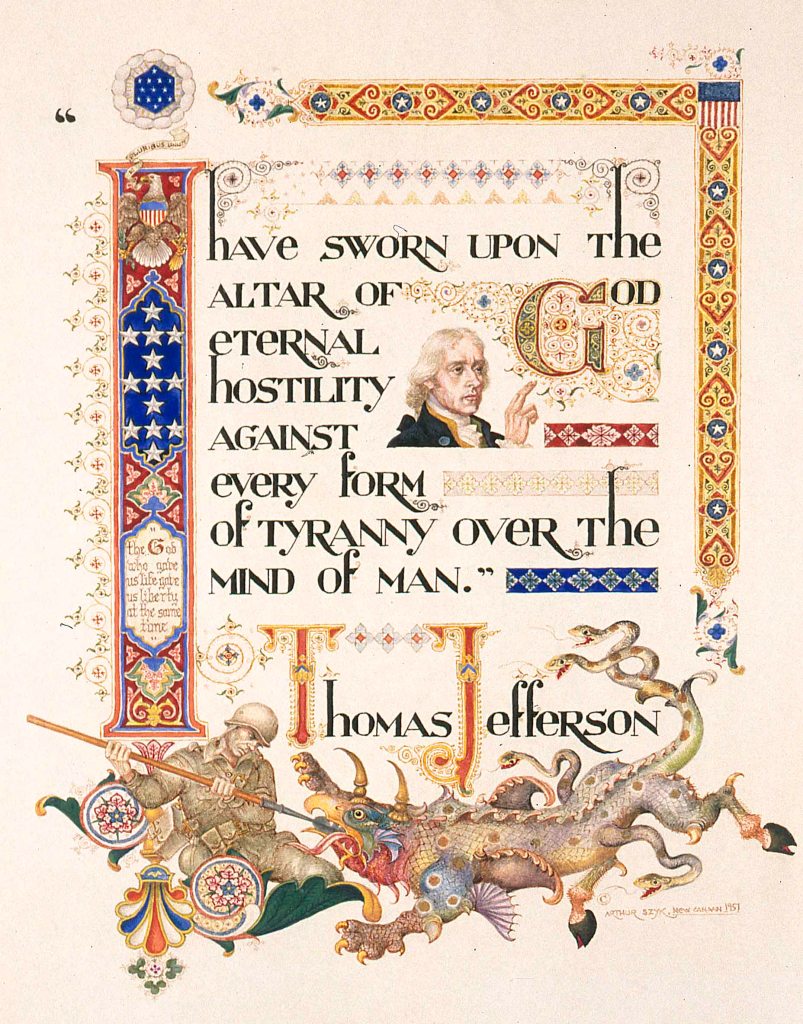 “
PLURIBUS
I have SWORN UPON The
ALTAR OF GOD
eTeRNAL
hOSTILITY
AGAINST
eveRY foRM
of TYRANNY OVER The
MIND of MAN.”
"
the God
who gave
us life gave
us liberty
at the same
time
"
Thomas Jefferson
© ARTHUR SZYK, NEW CANAAN 1951